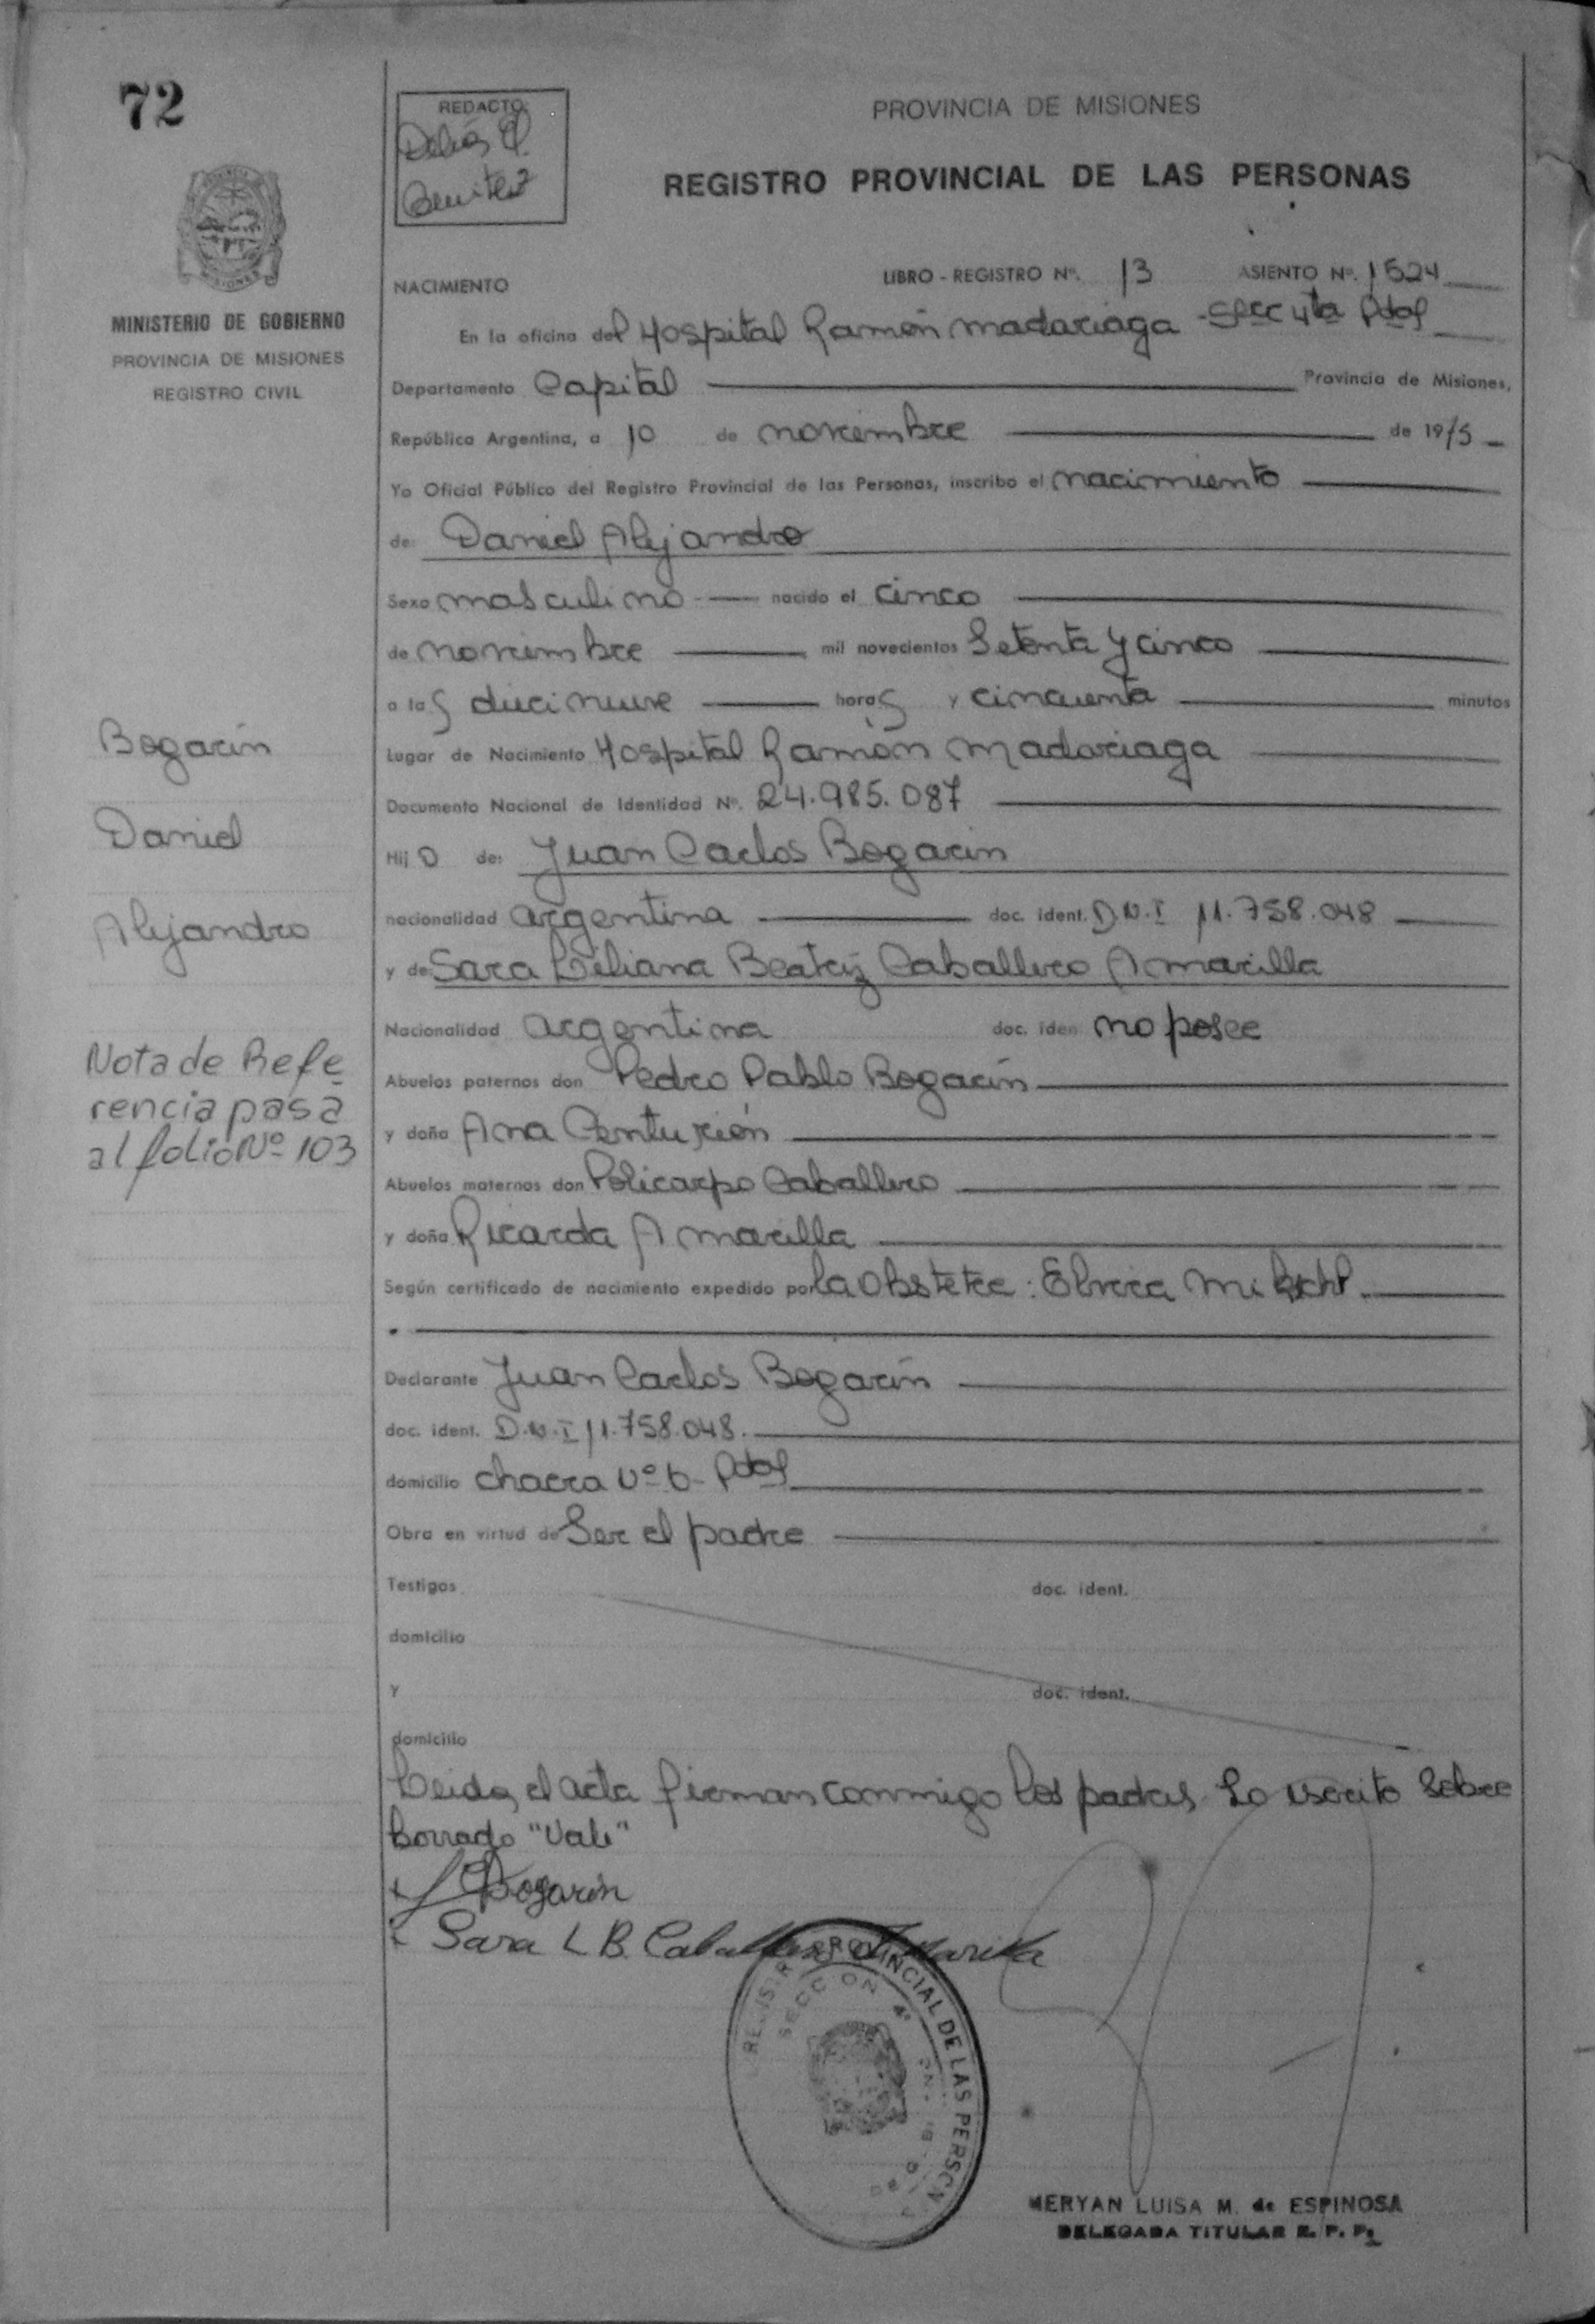 72
REDACTO:
Benitez
PROVINCIA DE MISIONES
REGISTRO PROVINCIAL DE LAS PERSONAS
MINISTERIO DE GOBIERNO
PROVINCIA DE MISIONES
REGISTRO CIVIL
NACIMIENTO LIBRO - REGISTRO Nº. 13 ASIENTO Nº. 1524
En la oficina del Hospital Ramón Madariaga - Secc 4ta Pdas
Departamento Capital Provincia de Misiones,
República Argentina, a 10 de noviembre de 1975
Yo Oficial Público del Registro Provincial de las Personas, inscribo el nacimiento
de: Daniel Alejandro
Sexo masculino nacido el cinco
de noviembre mil novecientos Setenta y cinco
a las diecinueve horas y cincuenta minutos
Lugar de Nacimiento Hospital Ramón Madariaga
Documento Nacional de Identidad Nº. 24.985.087
Hijo de: Juan Carlos Bogarín
nacionalidad argentina doc. ident. D.N.I 11.758.048
y de: Sara Liliana Beatriz Caballero Amarilla
Nacionalidad argentina doc. iden no posee
Abuelos paternos don Pedro Pablo Bogarín
y doña Ana Centurión
Abuelos maternos don Policarpo Caballero
y doña Ricarda Amarilla
Según certificado de nacimiento expedido por la Obstetre: Elvira
Declarante Juan Carlos Bogarín
doc. ident. D.N.I 11.758.048.
domicilio chacra Nº 6- Pdas
Obra en virtud de Ser el padre
Testigos doc. ident.
domicilio
y doc. ident.
domicilio
Leida, el acta firman conmigo los padres. Lo escrito Sobre
borrado "Vale"
Bogarín
Sara L B. Caballero Amarilla
Bogarín
Daniel
Alejandro
Nota de Refe
rencia pasa
al folio Nº 103
REGISTRO PROVINCIAL DE LAS PERSONAS
SECCION 4º
MERYAN LUISA M. de ESPINOSA
DELEGADA TITULAR R. P. P.